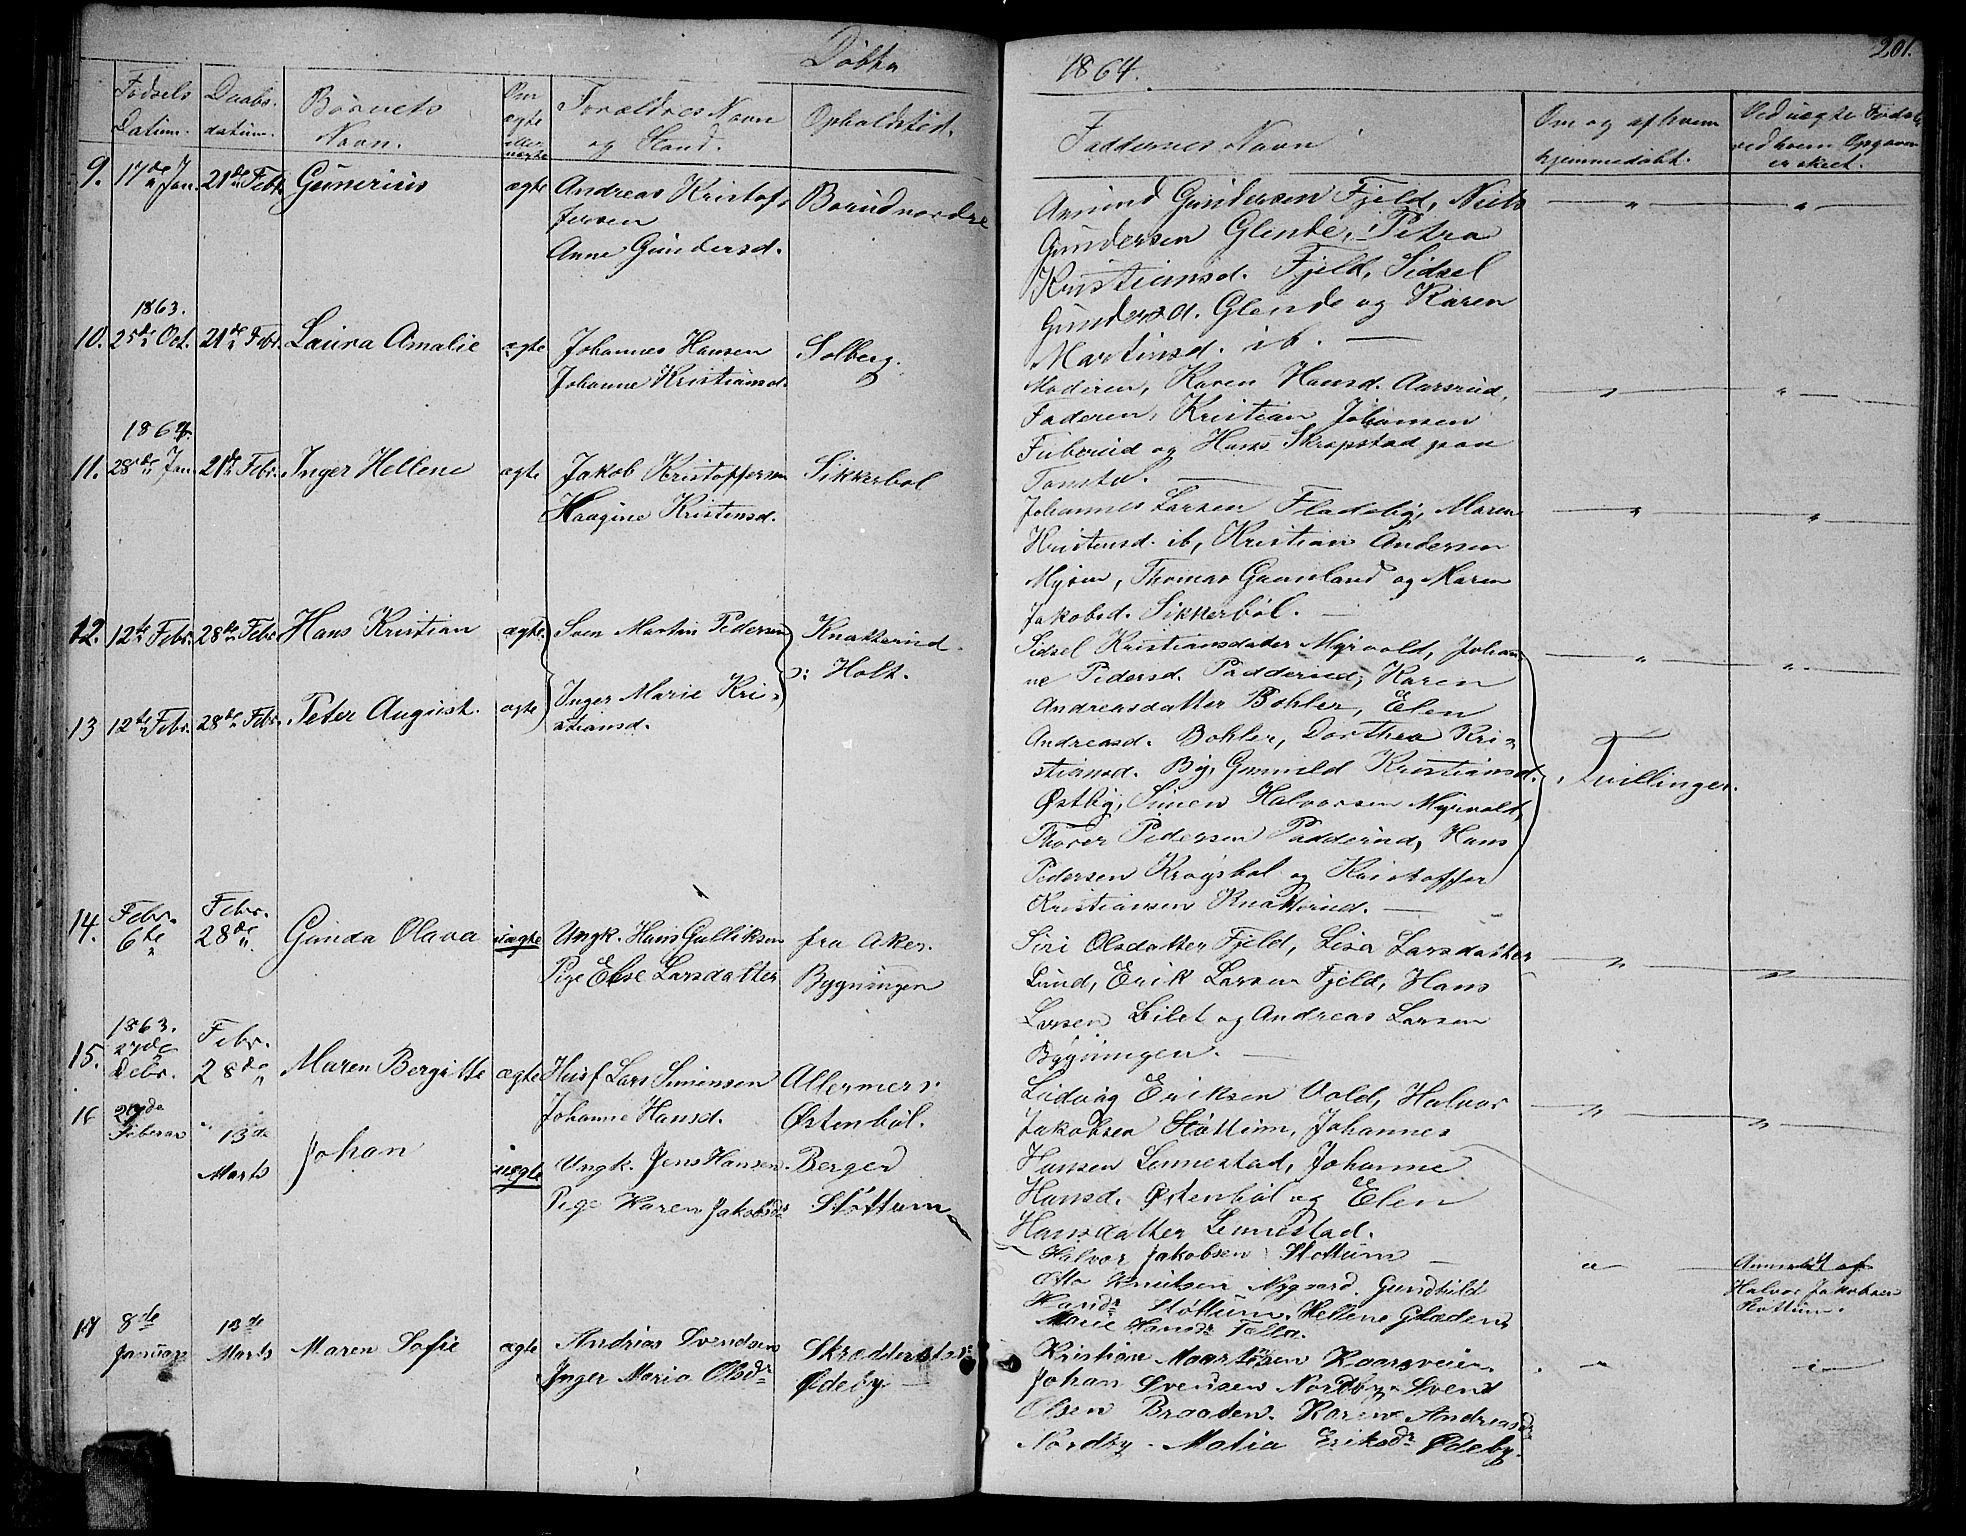 Døbte
1864.
201.
Fødsels Datum.
Daabs datum.
Barnets Navn.
Om ægte eller uægte
Forældres Navn og Stand.
Opholdsted.
Faddernes Navn
Om og af hvem hjemmedøbt.
Ved uægte Fødsler ved hvem Opgaven er skeet.
9. 17de Jan. 21de Febr. Gunerius ægte Andreas Kristofo
fersen
Anne Gundersd.
Borud nordre
Amund Gundersen Fjeld, Niels
Gundersen Glende, Petra
Kristiansd. Fjeld, Sidsel
Gundersd. Glende og Karen
Martinsd. ib. —
1863.
10. 25de Oct. 21de Febr. Laura Amalie ægte Johannes Hansen
Johanne Kristiansd.
Solberg.
Moderen, Karen Hansd. Aarsrud,
Faderen, Kristian Johansen
Fuberud og Hans Skrepstad paa
Tomta. —
1864.
11. 28de Jan. 21de Febr. Inger Hellene ægte Jakob Kristoffersen
Haagine Kristensd.
Sikkerbøl
Johannes Larsen Fladeby, Maren
Kristensd. ib, Kristian Andersen
Mysen, Thomas Gaaseland og Maren
Jakobsd. Sikkerbøl. —
12. 12te Febr. 28de Febr. Hans Kristian ægte Sven Martin Pedersen
Knatterud
o: Holt.
13 12te Febr. 28de Febr. Peter August. ægte Inger Marie Kri-
stiansd.
Sidsel Kristiansdatter Myrvold, Johan-
ne Pedersd. Padderud, Karen
Andreasdatter Bøhler, Elen
Andreasd. Bøhler, Dorthea Kri-
stiansd. By, Gunnild Kristiansd.
Østby, Simen Halvorsen Myrvold,
Thorer Pedersen Padderud, Hans
Pedersen Krogsbøl og Kristoffer
Kristiansen Knatterud. —
Tvillinger.
14. Febr. 6te Febr. 28de Gunda Olava uægte Ungk. Hans Gulliksen
Pige Else Larsdatter
fra Aker.
Bygningen
Siri Olsdatter Fjeld, Lisa Larsdatter
Lund, Erik Larsen Fjeld, Hans
Larsen Lilet og Andreas Larsen
Bygningen. —
1863.
15. 27de Debr. Febr. 28de Maren Bergitte ægte Husf. Lars Simensen
Johanne Hansd.
Allermers:
Østenbøl.
Ludvig Eriksen Vold, Halvor
Jakobsen Støttum, Johannes
Hansen Lennestad, Johanne
Hansd. Østenbøl og Elen
Hansdatter Lennestad.
16 Feberar 13de Marts Johan uægte Ungk. Jens Hansen.
Pige Karen Jakobsdr
Berger
Støttum
Halvor Jakobsen Støttum —
Otto Knutsen Nygaard. Gundhild
Hansdr Støttum. Hellene Gladen
Marie Hansdr
Anmeldt af
Halvor Jakobsen
Støttum.
17 8de Januar 13de Marts Maren Sofie ægte Andreas Svendsen
Inger Maria Olsdr
Skrædderstu:
Ødeby —
Kristian Maartesen Kaarsveien.
Johan Svensen Nordby. Svend
Olsen Braaten. Karen Andreasdr
Nordby. Matia Eriksdr Ødeby.